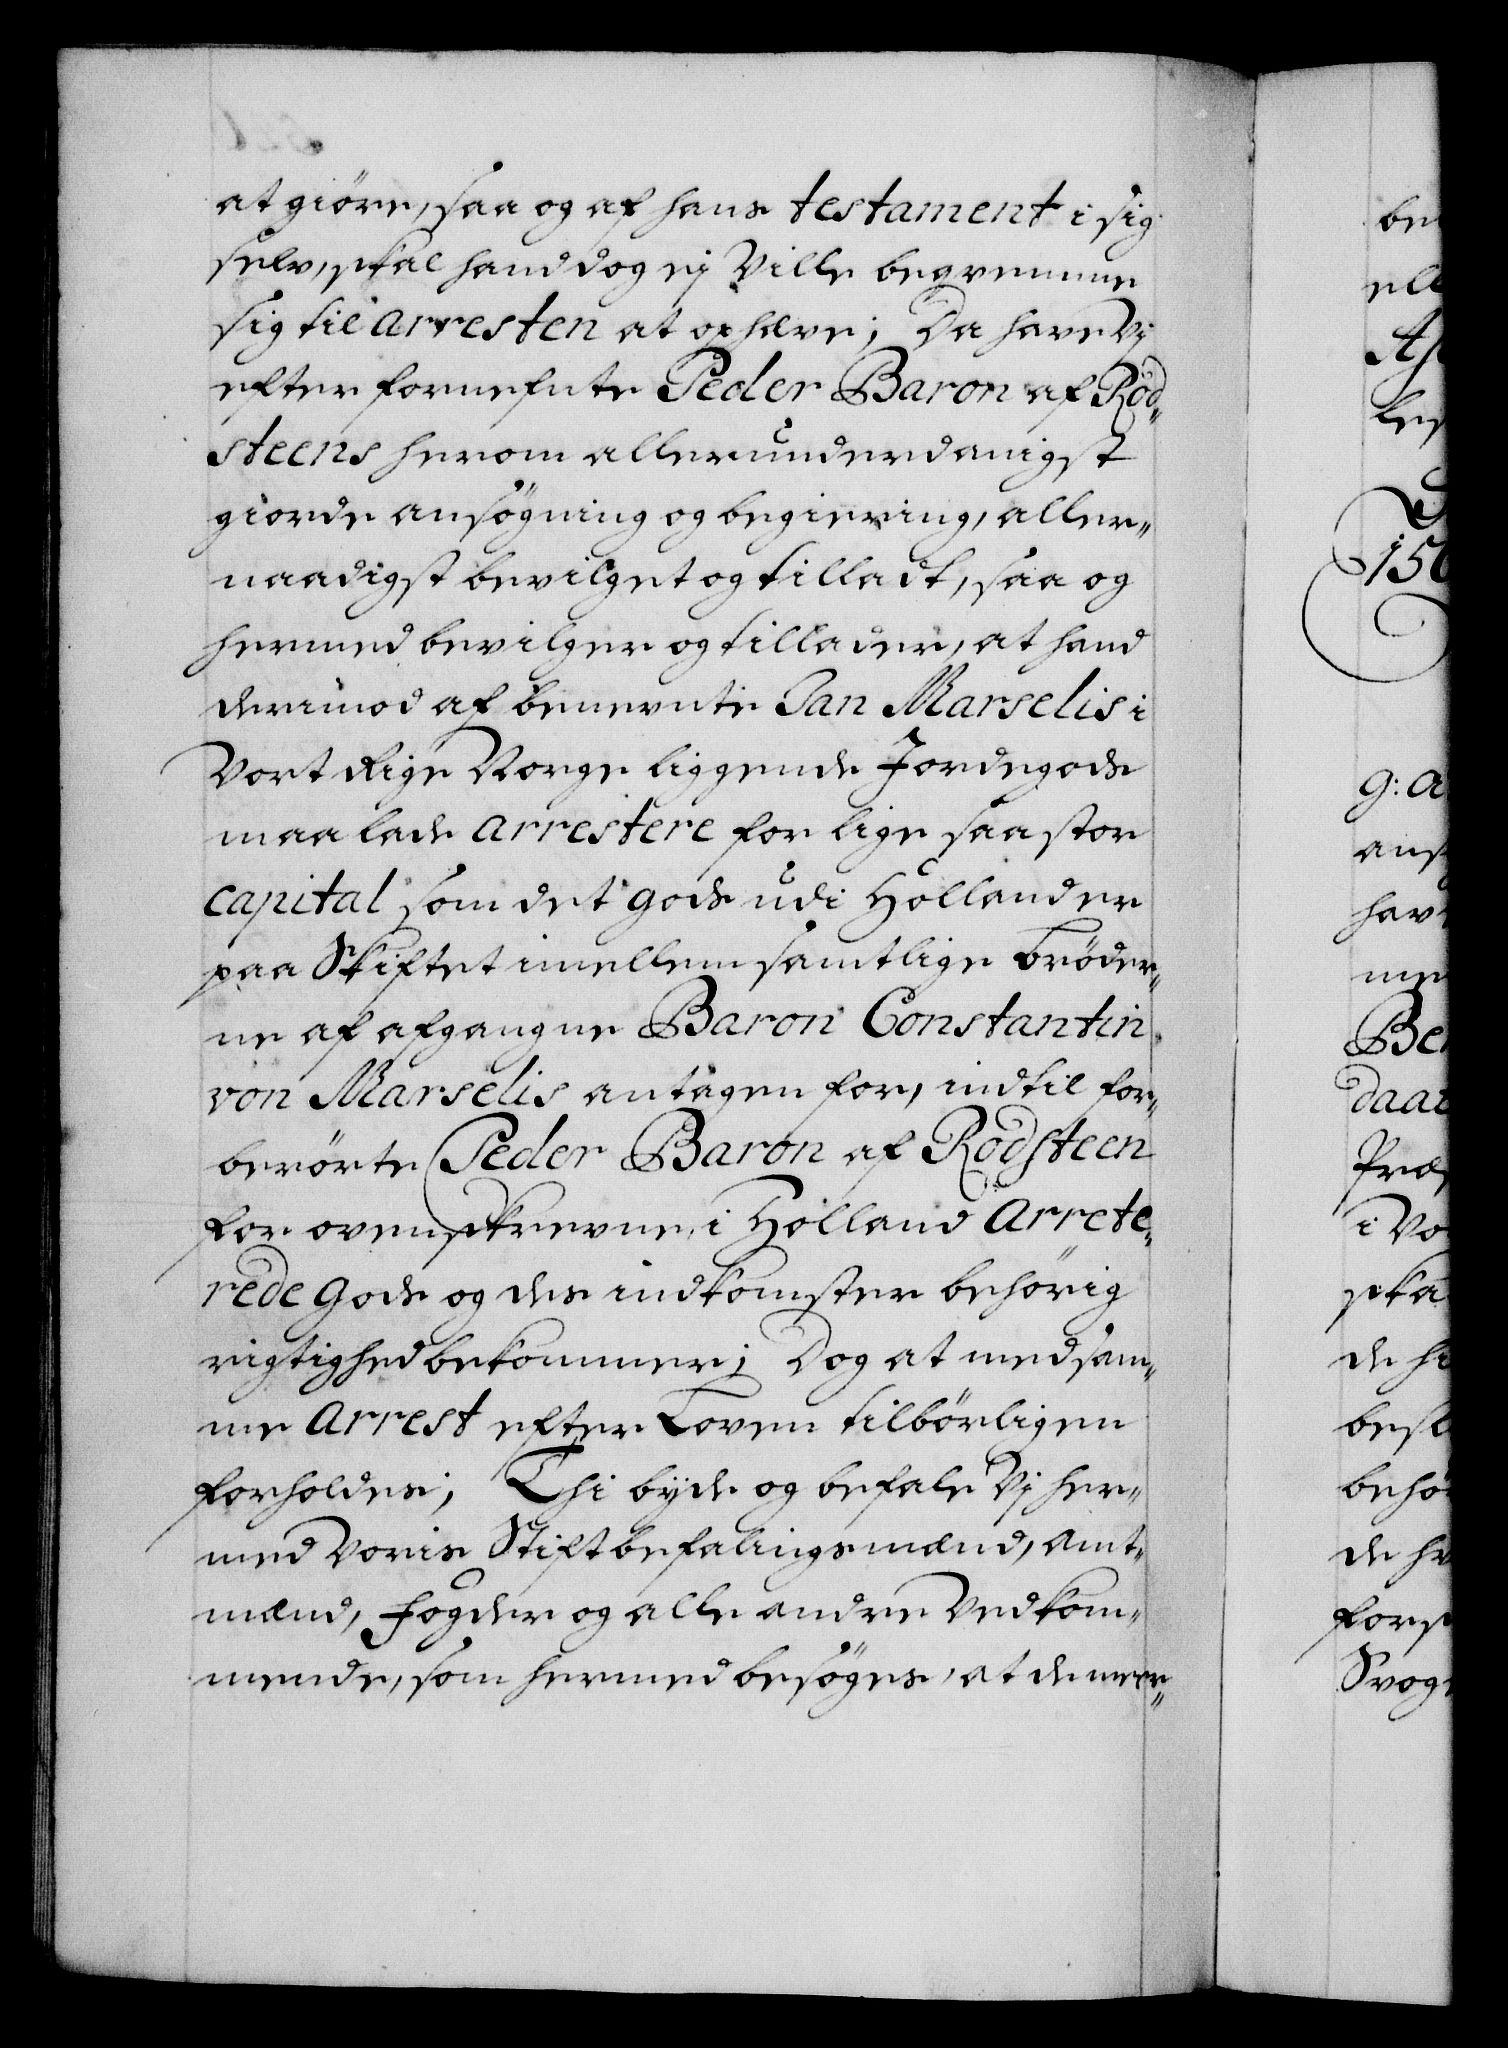 at giöre, saa og af hans testament i sig
selv, skal hand dog ej Ville beqvemme
sig til Arresten at ophæve; Da have Vj
efter fornefnte Peder Baron af Rod„
steens herom allerunderdanigst
giorde ansögning og begiering, aller„
naadigst bevilget og tilladt, saa og
hermed bevilger og tillader, at hand
derimod af benevnte Jan Marselis i
Vort Rige Norge liggende Jordegods
maa lade arrestere for lige saa stor
capital som det gods udi Hollander
paa Skiftet imellem samtlige Bröder„
ne af afgangne Baron Constantin
von Marselis antagen for, indtil for„
berörte Peder Baron af Rodsteen
for ovenskrevne i Holland Arrete„
rede Gods og des indkomster behörig
rigtighed bekommer; Dog at med sam„
me Arrest efter Loven tilbörligen
forholdes; Thi byde og befale Vj her„
med Voris Stiftbefalingsmænd, Amt„
mænd, Fogder og alle andre Vedkom„
mende, som hermed besöges, at de meer„
be
ell
les
150
g: a
ans
hav
med
Be
daat
Præ
i Vo
ska
de hi
besl
behö
de hv
fors
Svog